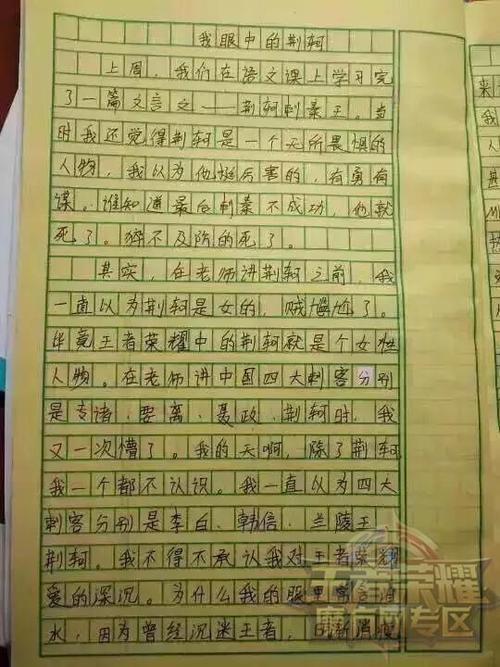 我眼中的荆轲
上周，我们在语文课上学习完
了一篇文言文——荆轲刺秦王。当
时我还觉得荆轲是一个无所畏惧的
人物，我以为他挺厉害的，有勇有
谋。谁知道最后刺秦不成功，他就
死了。猝不及防的死了。
其实，在老师讲荆轲之前，我
一直以为荆轲是女的，贼尴尬了。
毕竟王者荣耀中的荆轲就是个女性
人物。在老师讲中国四大刺客分别
是专诸、要离、聂政、荆轲时，我
又一次懵了。我的天啊，除了荆轲
我一个都不认识。我一直以为四大
刺客分别是李白、韩信、兰陵王、
荆轲。我不得不承认我对王者荣耀
爱的深沉。为什么我的眼里常含泪
水，因为曾经沉迷王者，日渐消瘦
来
我
人
王者荣耀
专区